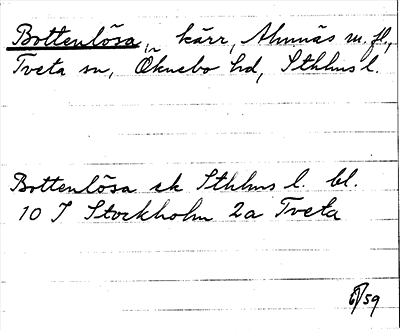 Bottenlösa, kärr, Almnäs m. fl.,
Tveta sn, Öknebo hd, Sthlms l.
Bottenlösa ek Sthlms l. bl.
10 I Stockholm 2a Tveta
/59